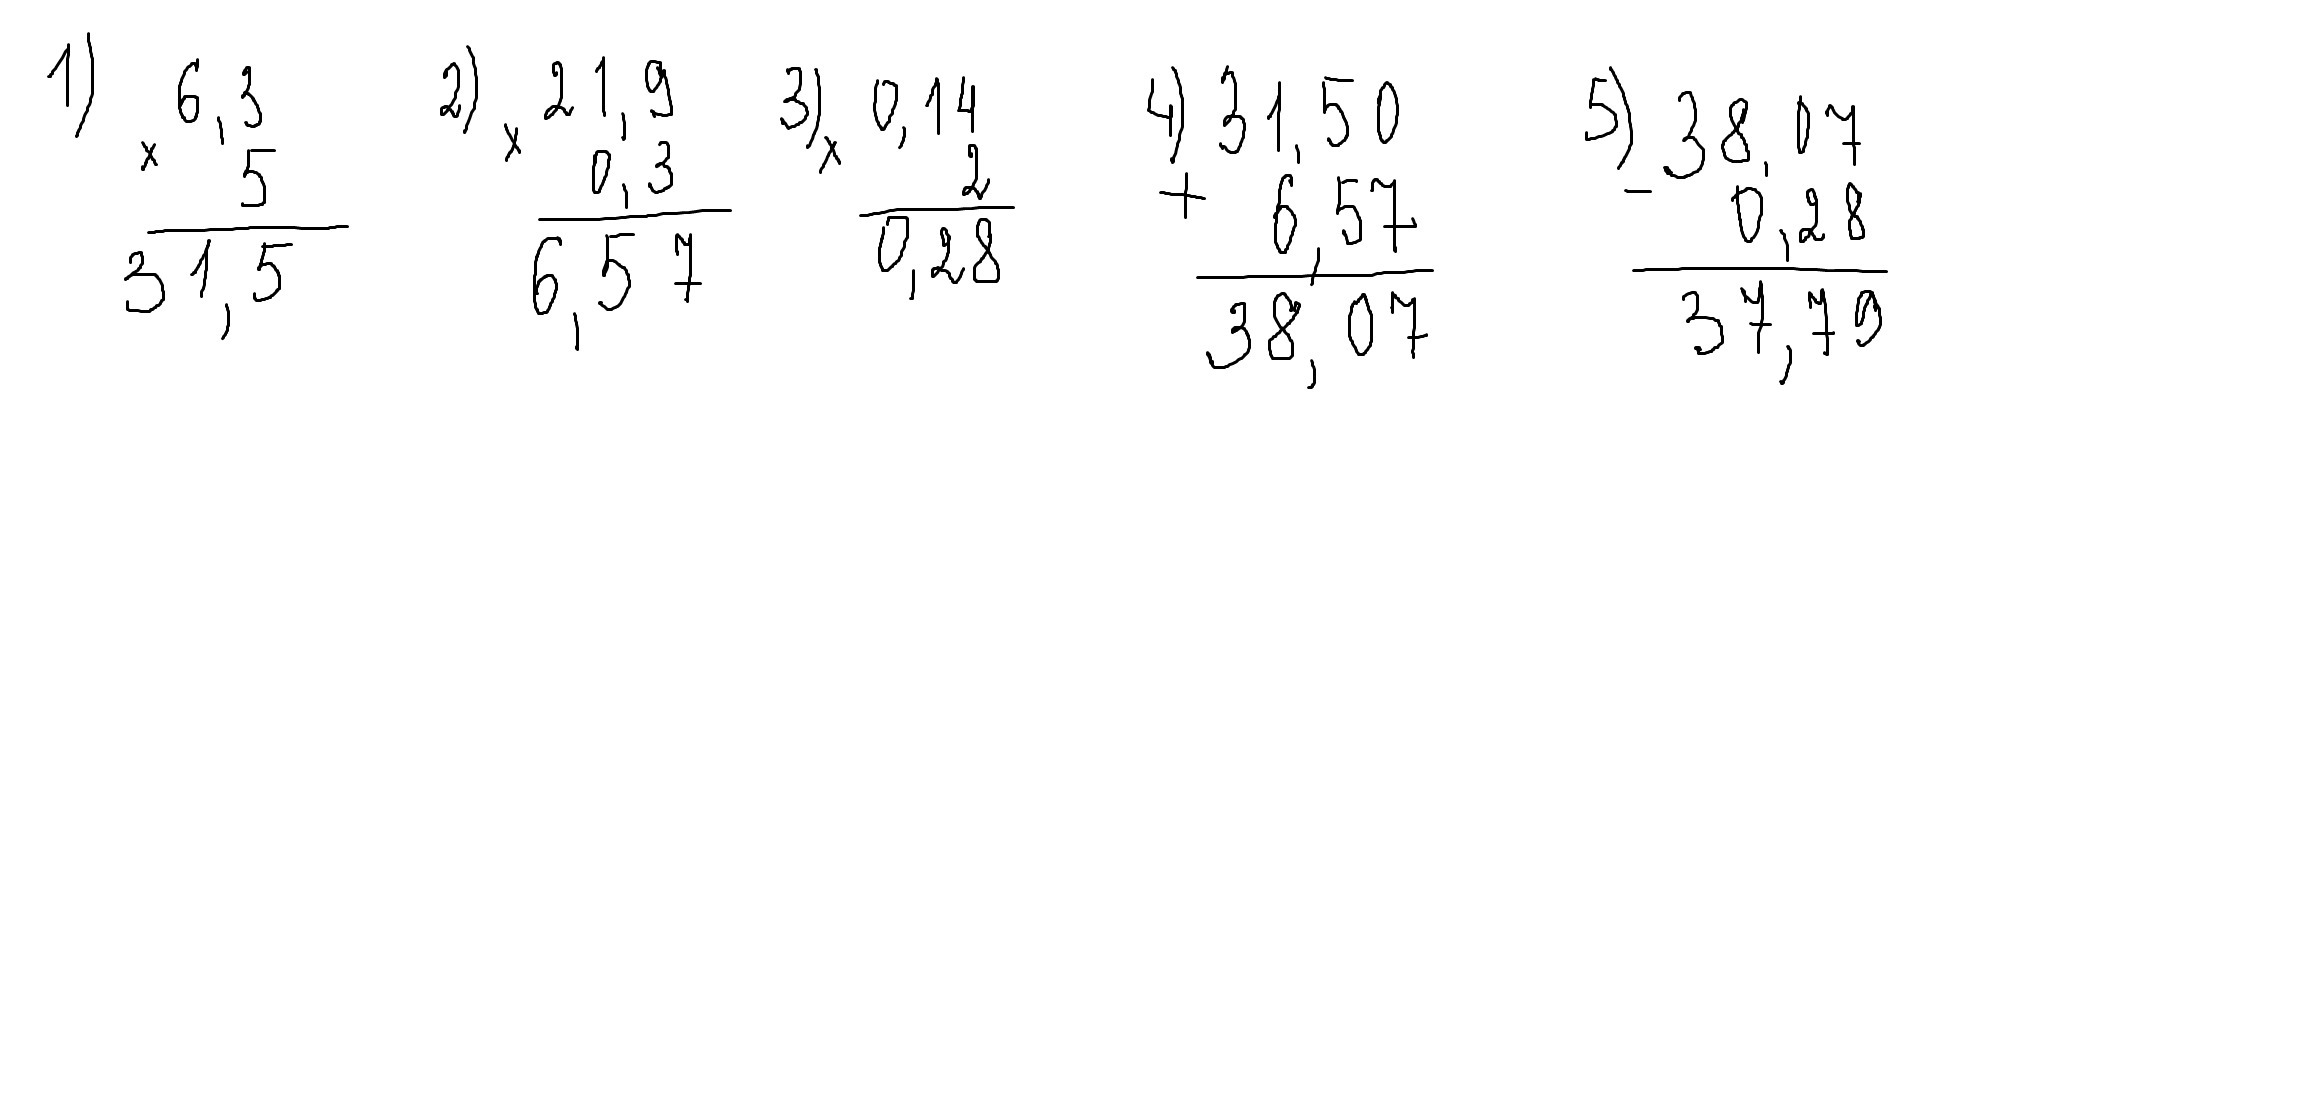 1) 6,3
× 5
31,5
2) 21,9
× 0,3
6,57
3) 0,14
× 2
0,28
4) 31,50
+ 6,57
38,07
5) 38,07
- 0,28
37,79